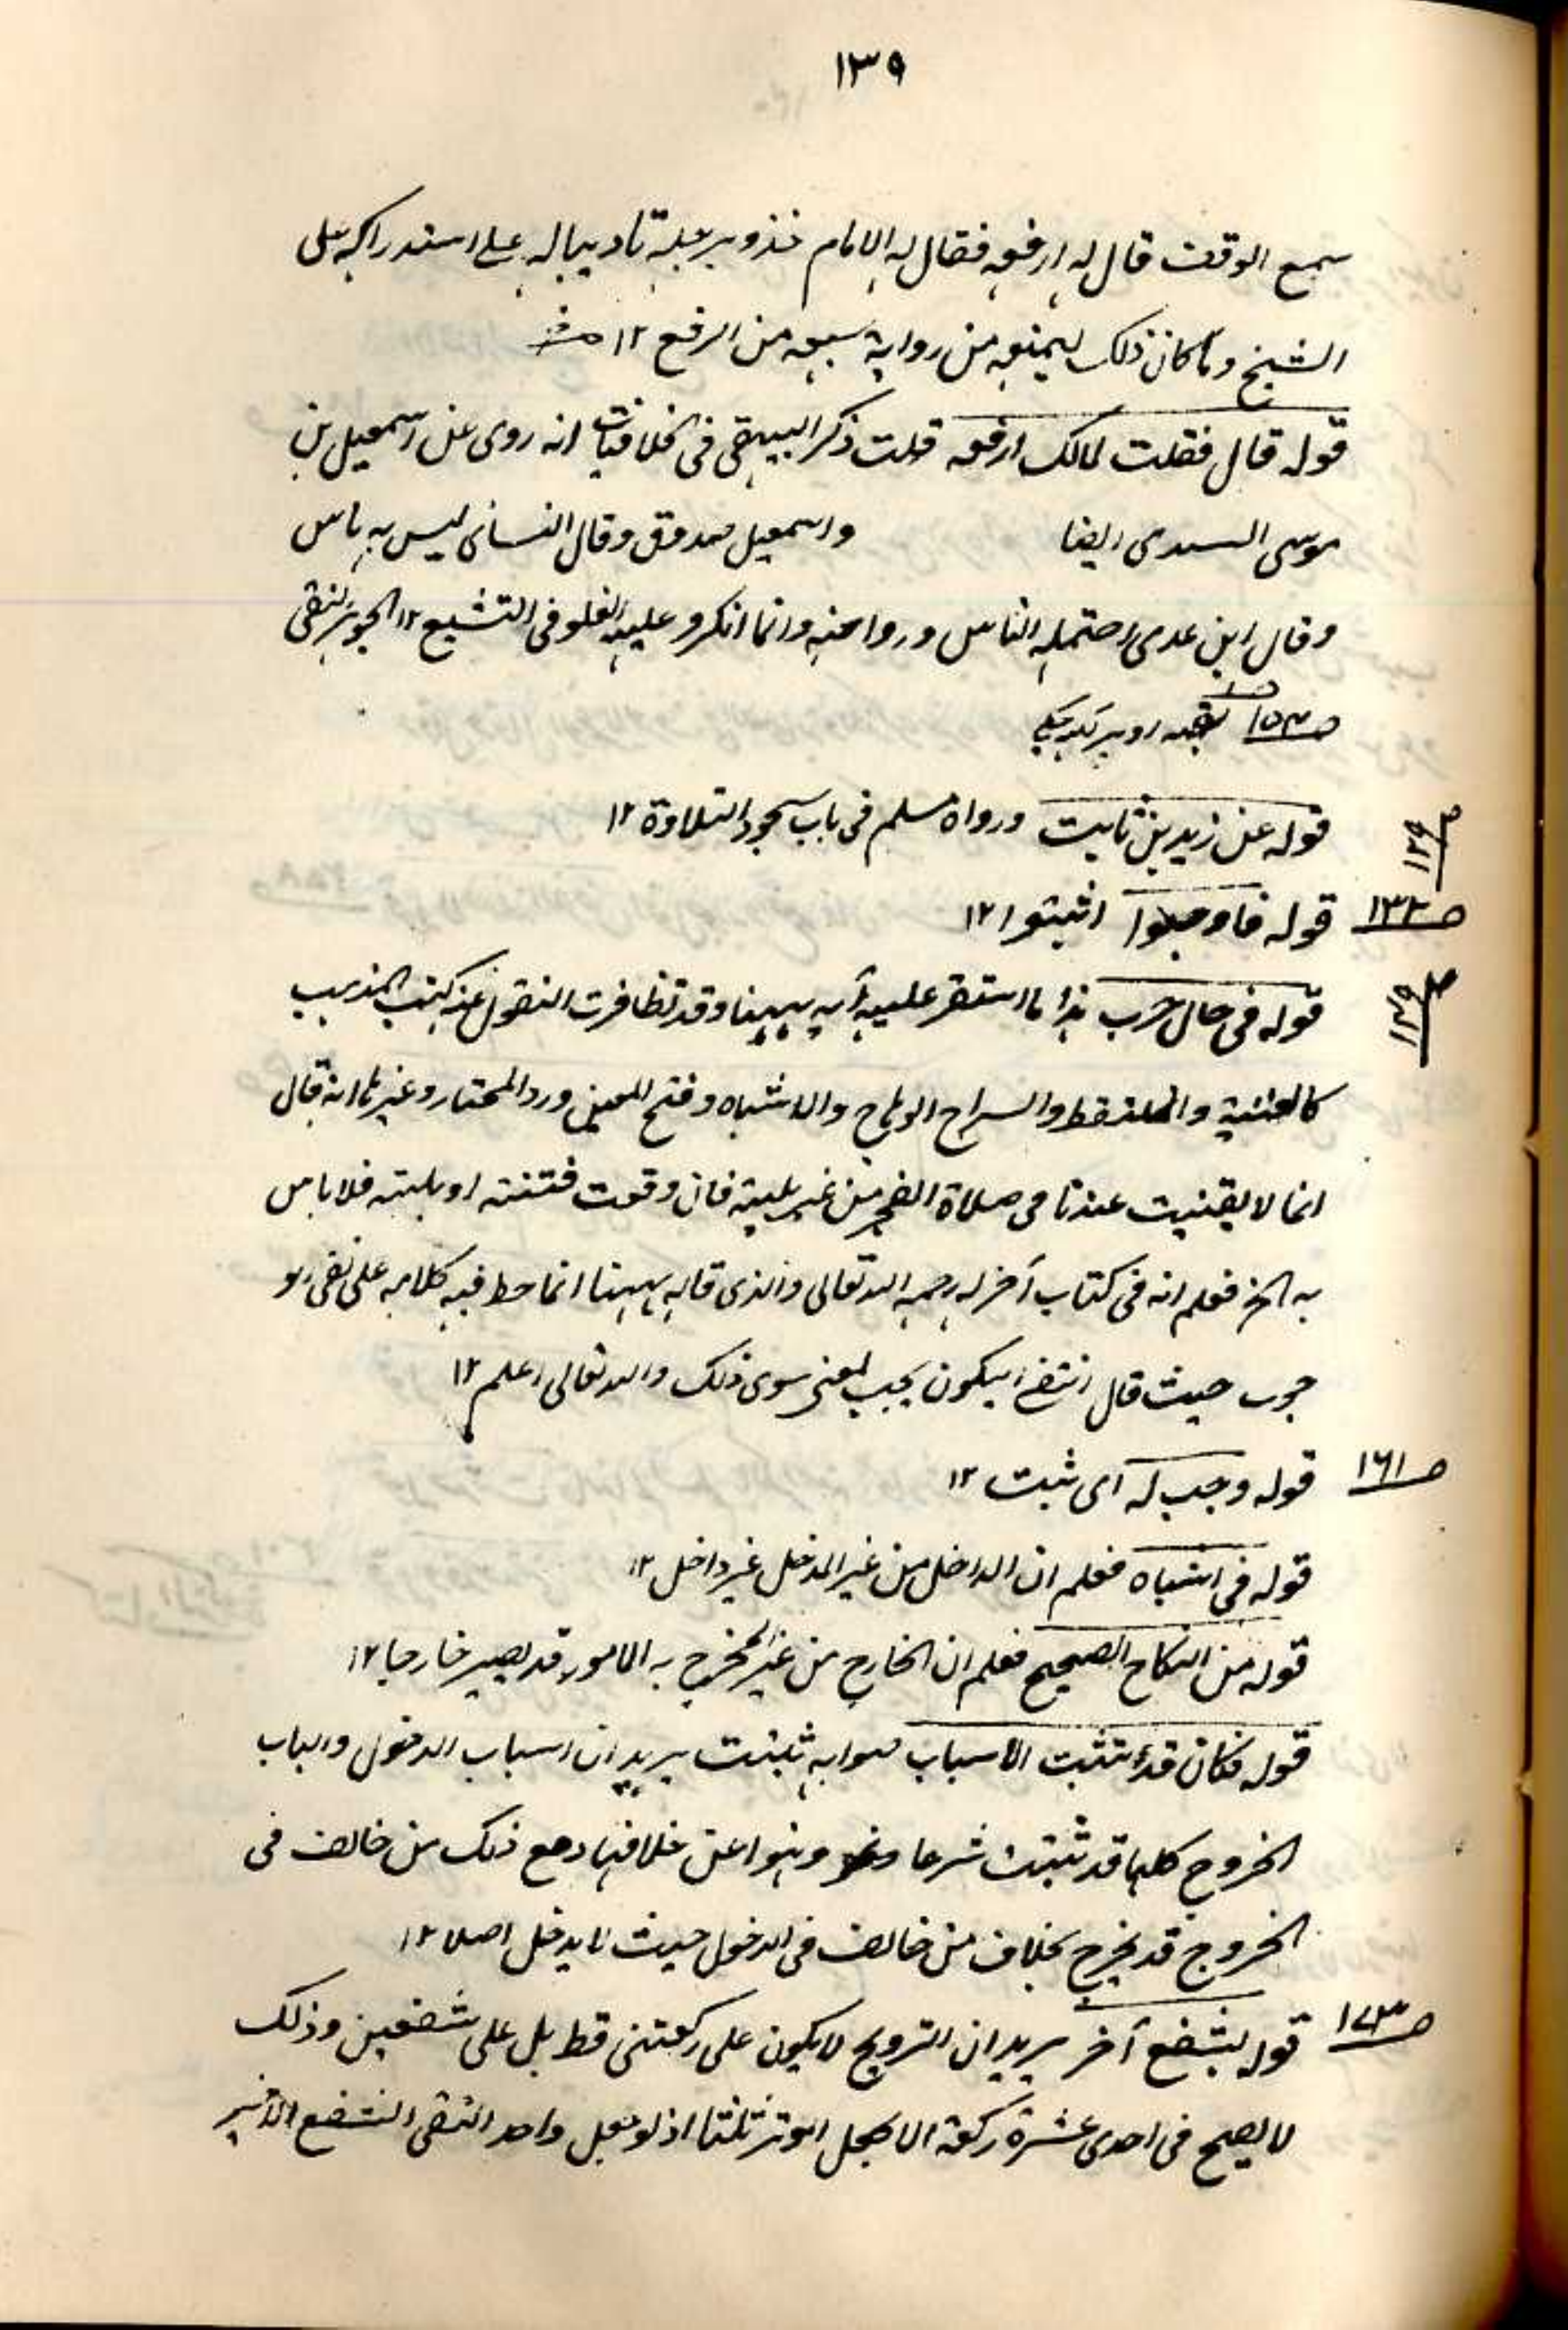 ١٣٩
سمع الوقف قال له ارفعه فقال له الامام خذو برجله تاديبا له على استدراكه على
الشيخ وما كان ذلك ليمنعه من رواية سمعه من الرفع ١٢ منه
قوله قال فقلت لمالك ارفعه قلت ذكر البيهقى فى الخلافيات انه روى عن اسمعيل بن
موسى السدى ايضا واسمعيل صدوق وقال النسائى ليس به باس
وقال ابن عدى احتمله الناس ورووا عنه وانما انكروا عليه الغلو فى التشيع ١٢ الجوهر النقى
ص١٥٣
ص١٢٩ قوله عن زيد بن ثابت ورواه مسلم فى باب سجود التلاوة ١٢
ص١٣٣ قوله فاوجبوا اثبتوا ١٢
ص١٤٩ قوله فى حال حرب هذا ما استقر عليه رأيه ههنا وقد تظافرت النقول عنه كتب المذهب
كالغنية والملتقط والسراج الوهاج والاشباه وفتح المعين ورد المحتار وغيرها انه قال
انما لا يقنت عندنا فى صلاة الفجر من غير بلية فان وقعت فتنة او بلية فلا باس
به الخ فعلم انه فى كتاب آخر له رحمه الله تعالى والذى قاله ههنا انما حط فيه كلامه على نفى الو
جوب حيث قال انتفى ان يكون يجب لمعنى سوى ذلك والله تعالى اعلم ١٢
ص١٦١ قوله وجب له اى ثبت ١٢
قوله فى اشباه فعلم ان الداخل من غير المدخل غير داخل ١٢
قوله من النكاح الصحيح فعلم ان الخارج من غير المخرج به المامور قد يصير خارجا ١٢
قوله فكان قد تثبت الاسباب صوابه ثبتت يريد ان اسباب الدخول واسباب
الخروج كلها قد ثبتت شرعا ونهوا عن خلافها ومع ذلك من خالف فى
الخروج قد يخرج بخلاف من خالف فى الدخول حيث لا يدخل اصلا ١٢
ص١٧٣ قوله بشفع آخر يريد ان الترويح لا يكون على ركعتين قط بل على شفعين وذلك
لا يصح فى احدى عشرة ركعة الا بجعل الوتر ثلثا اذ لو جعل واحد انتفى الشفع الاخير